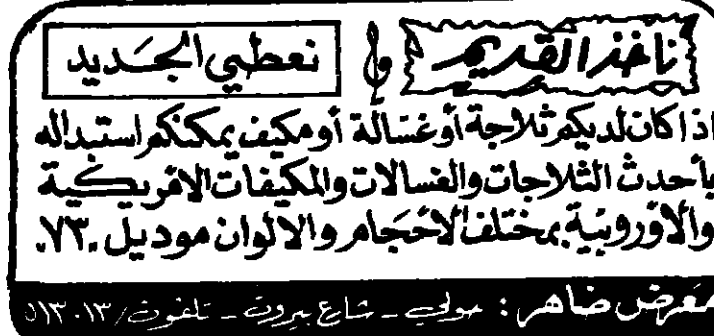 نأخذ القديم و نعطي الجديد
اذا كان لديكم ثلاجة أو غسالة أو مكيف يمكنكم استبداله
بأحدث الثلاجات والغسالات والمكيفات الامريكية
والاوروبية بمختلف الاحجام والالوان موديل ٧٣.
معرض ضاهر : حولي - شارع بيروت - تلفون /